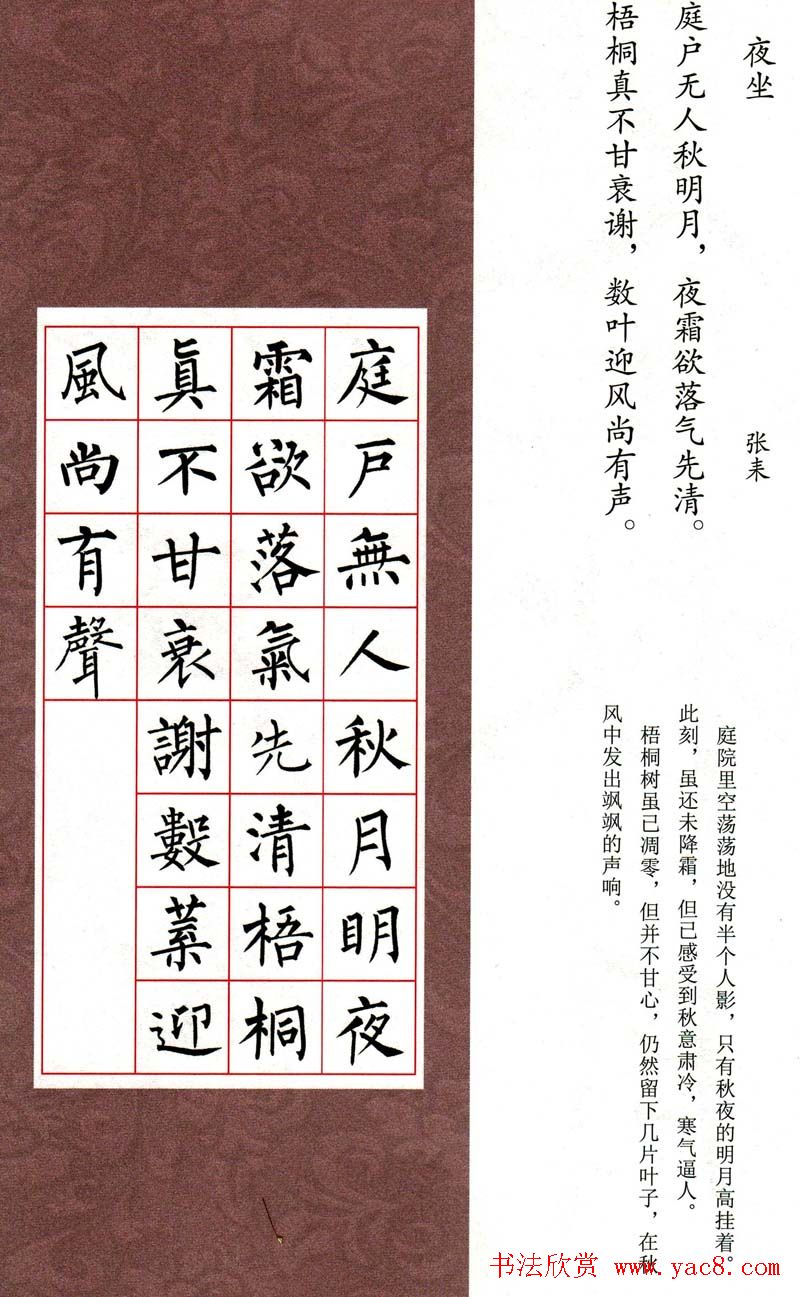 夜坐
张耒
庭户无人秋明月，夜霜欲落气先清。
梧桐真不甘衰谢，数叶迎风尚有声。
庭院里空荡荡地没有半个人影，只有秋夜的明月高挂着。
此刻，虽还未降霜，但已感受到秋意肃冷，寒气逼人。
梧桐树虽已凋零，但并不甘心，仍然留下几片叶子，在秋
风中发出飒飒的声响。
庭戶無人秋月明夜
霜欲落氣先清梧桐
真不甘衰謝數葉迎
風尚有聲
书法欣赏 www.yac8.com